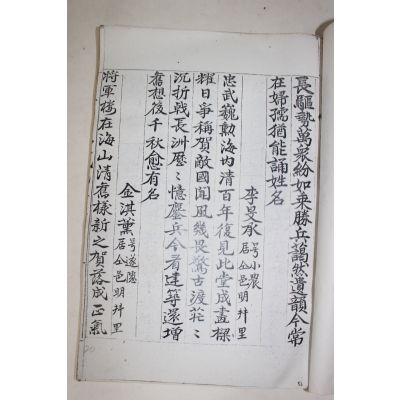 長驅勢萬衆紛如乘勝兵藹然遺韻今常
在婦孺猶能誦姓名
李旻承 号小農 居仝邑明井里
忠武巍勳海內清百年復見此堂成畫樑
耀日爭稱賀敵國聞風幾畏驚古渡茫〻
沉折戟長洲歷〻憶鏖兵今看建築還增
舊想後千秋愈有名
金淇薰 号遂隱 居仝邑明井里
將軍楼在海山清舊樣新之賀落成正氣